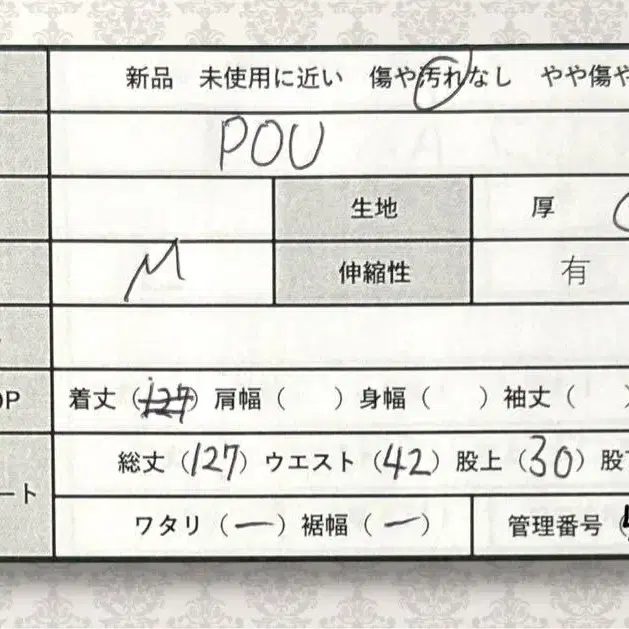 新品 未使用に近い 傷や汚れなし やや傷や
POU
生地 厚
M 伸縮性 有
OP 着丈（127）肩幅（ ）身幅（ ）袖丈（ ）
総丈（127）ウエスト（42）股上（30）股
ート
ワタリ（ー）裾幅（ー） 管理番号（